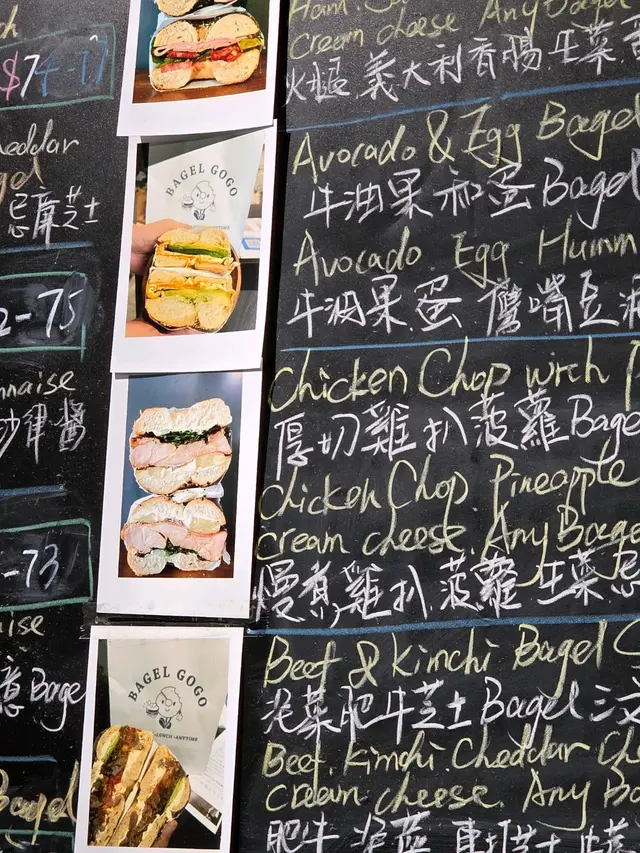 $7
-17
eddar
忌廉芝士
-75
nnaise
沙律醬
-73
意 Bage
Bagel
BAGEL GOGO
BAGEL GOGO
LUNCH•ANYTIME
Cream cheese Any Bagel
火腿 義大利香腸 生菜
Avocado & Egg Bagel
牛油果和蛋Bagel
Avocado Egg Humm
牛油果.蛋 鷹嘴豆
Chicken Chop with P
厚切雞扒菠蘿Bage
Chicken Chop. Pineapple
cream cheese. Any Bage
慢煮雞扒 菠蘿 生菜 忌
Beef & Kimchi Bagel C
泡菜肥牛芝士Bagel
Beef. Kimchi Cheddar Che
Cream cheese. Any Ba
肥牛 泡菜 車打芝士